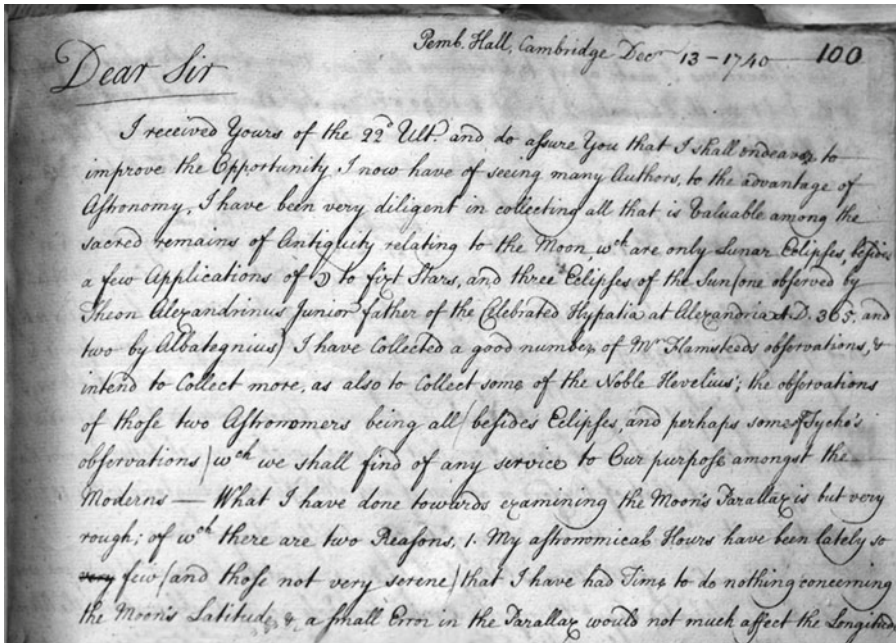 Pemb. Hall, Cambridge Decr 13 - 1740 100
Dear Sir
I received Yours of the 22d Ult. and do assure You that I shall endeavor to
improve the Opportunity I now have of seeing many Authors, to the advantage of
Astronomy, I have been very diligent in collecting all that is Valuable among the
sacred remains of Antiquity relating to the Moon, wch are only Lunar Eclipses, besides
a few Applications of ☽ to fixt Stars, and three Eclipses of the Sun (one observed by
Theon Alexandrinus Junior father of the Celebrated Hypatia at Alexandria A.D. 365. and
two by Albategnius) I have Collected a good number of Mr Flamsteeds observations, &
intend to Collect more, as also to Collect some of the Noble Hevelius'; the observations
of those two Astronomers being all (besides Eclipses, and perhaps some of Tycho's
observations) wch we shall find of any service to Our purpose amongst the
Moderns — What I have done towards examining the Moon's Parallax is but very
rough; of wch there are two Reasons, 1. My astronomical Hours have been lately so
very few (and those not very serene) that I have had Time to do nothing concerning
the Moon's Latitude, & a small Error in the Parallax would not much affect the Longitude